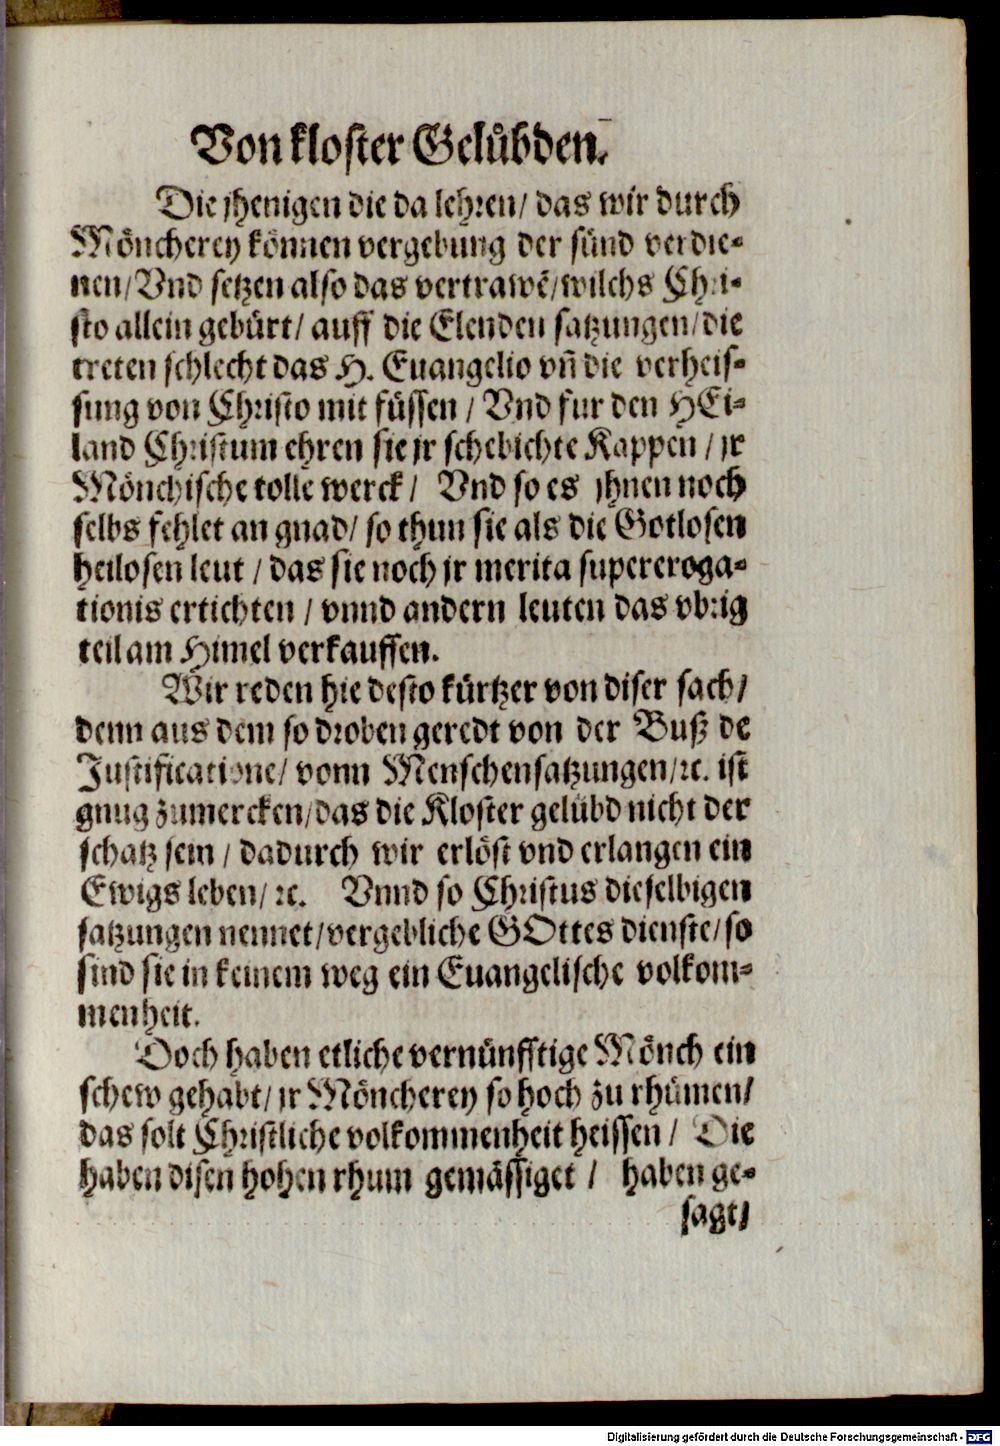 Von kloster Gelübden.
Die jhenigen die da lehren/ das wir durch
Möncherey können vergebung der sünd verdie⸗
nen/Vnd setzen also das vertrawē/wilchs Chri⸗
sto allein gebürt/ auff die Elenden satzungen/die
treten schlecht das H. Euangelio vñ die verheis⸗
sung von Christo mit füssen / Vnd fur den HEi⸗
land Christum ehren sie jr schebichte Kappen / jr
Mönchische tolle werck/ Vnd so es jhnen noch
selbs fehlet an gnad/ so thun sie als die Gotlosen
heilosen leut / das sie noch jr merita supereroga⸗
tionis ertichten / vnnd andern leuten das vbrig
teil am Himel verkauffen.
Wir reden hie desto kürtzer von diser sach/
denn aus dem so droben geredt von der Buß de
Justificatione/ vonn Menschensatzungen/ꝛc. ist
gnug zumercken/das die Kloster gelübd nicht der
schatz sein / dadurch wir erlöst vnd erlangen ein
Ewigs leben/ ꝛc. Vnnd so Christus dieselbigen
satzungen nennet/vergebliche GOttes dienste/so
sind sie in keinem weg ein Euangelische volkom⸗
menheit.
Doch haben etliche vernünfftige Mönch ein
schew gehabt/ jr Möncherey so hoch zu rhümen/
das solt Christliche volkommenheit heissen / Die
haben disen hohen rhum gemässiget / haben ge⸗
sagt/
Digitalisierung gefördert durch die Deutsche Forschungsgemeinschaft - DFG